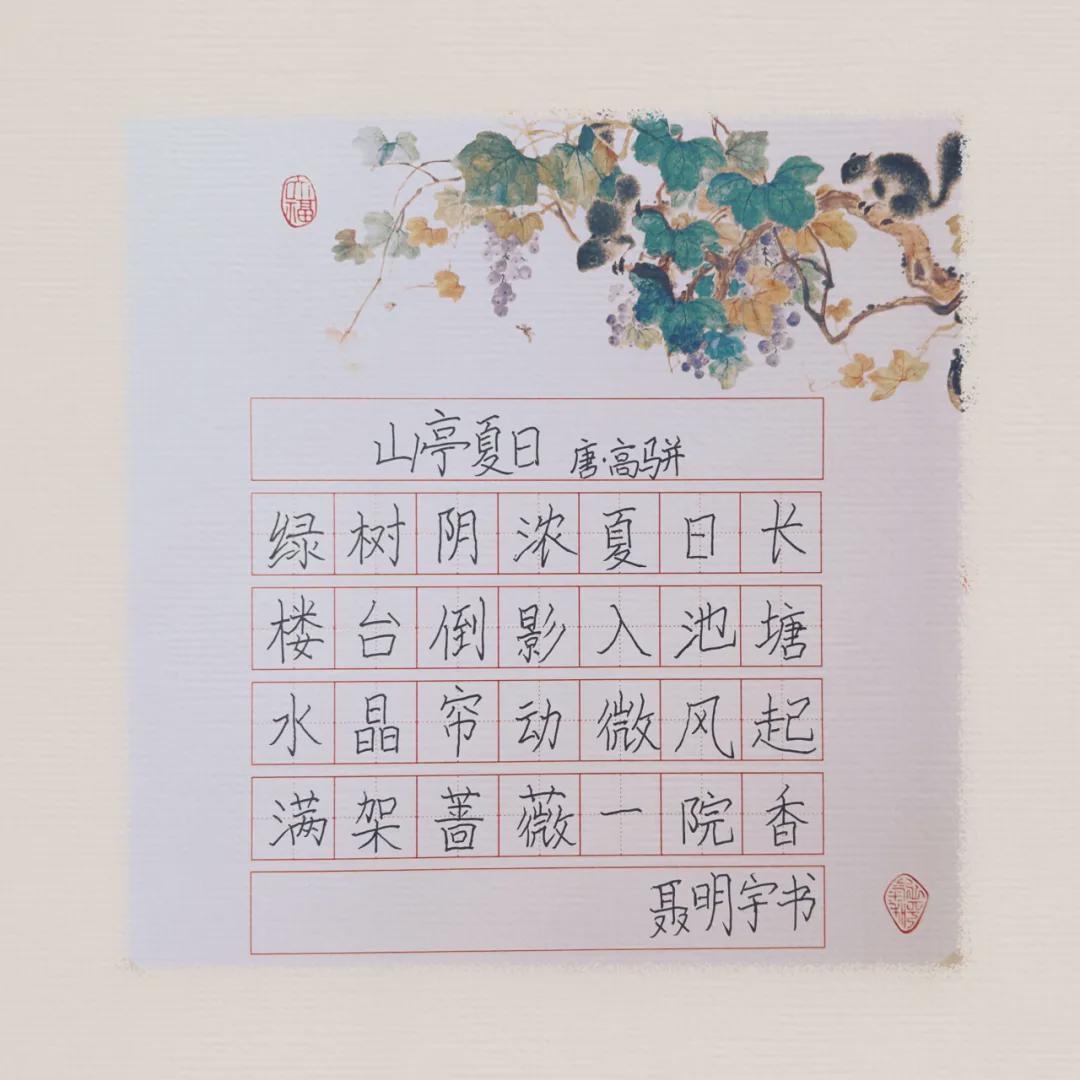 山亭夏日 唐·高骈
绿树阴浓夏日长
楼台倒影入池塘
水晶帘动微风起
满架蔷薇一院香
聂明宇书